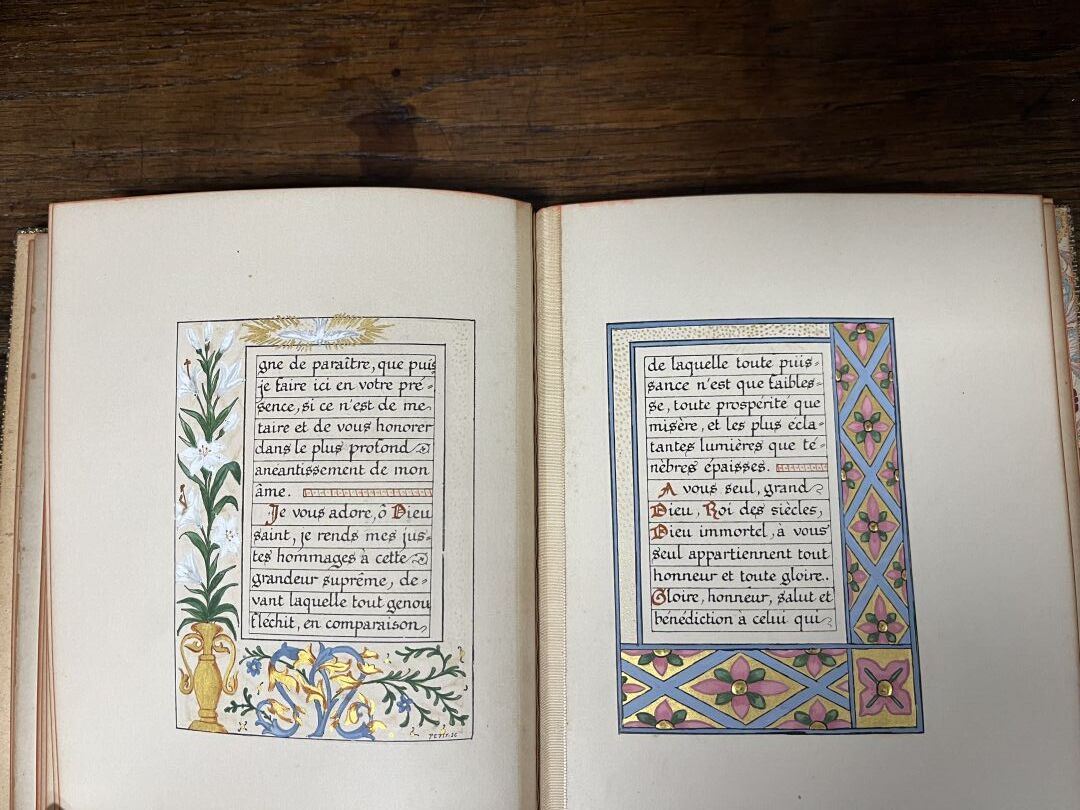 gne de paraître, que puis
je faire ici en votre pré-
sence, si ce n'est de me
taire et de vous honorer
dans le plus profond
anéantissement de mon
âme.
Je vous adore, ô Dieu
saint, je rends mes jus-
tes hommages à cette
grandeur suprême, de-
vant laquelle tout genou
fléchit, en comparaison
de laquelle toute puis-
sance n'est que faibles-
se, toute prospérité que
misère, et les plus écla-
tantes lumières que té-
nèbres épaisses.
A vous seul, grand
Dieu, Roi des siècles,
Dieu immortel, à vous
seul appartiennent tout
honneur et toute gloire..
Gloire, honneur, salut et
bénédiction à celui qui